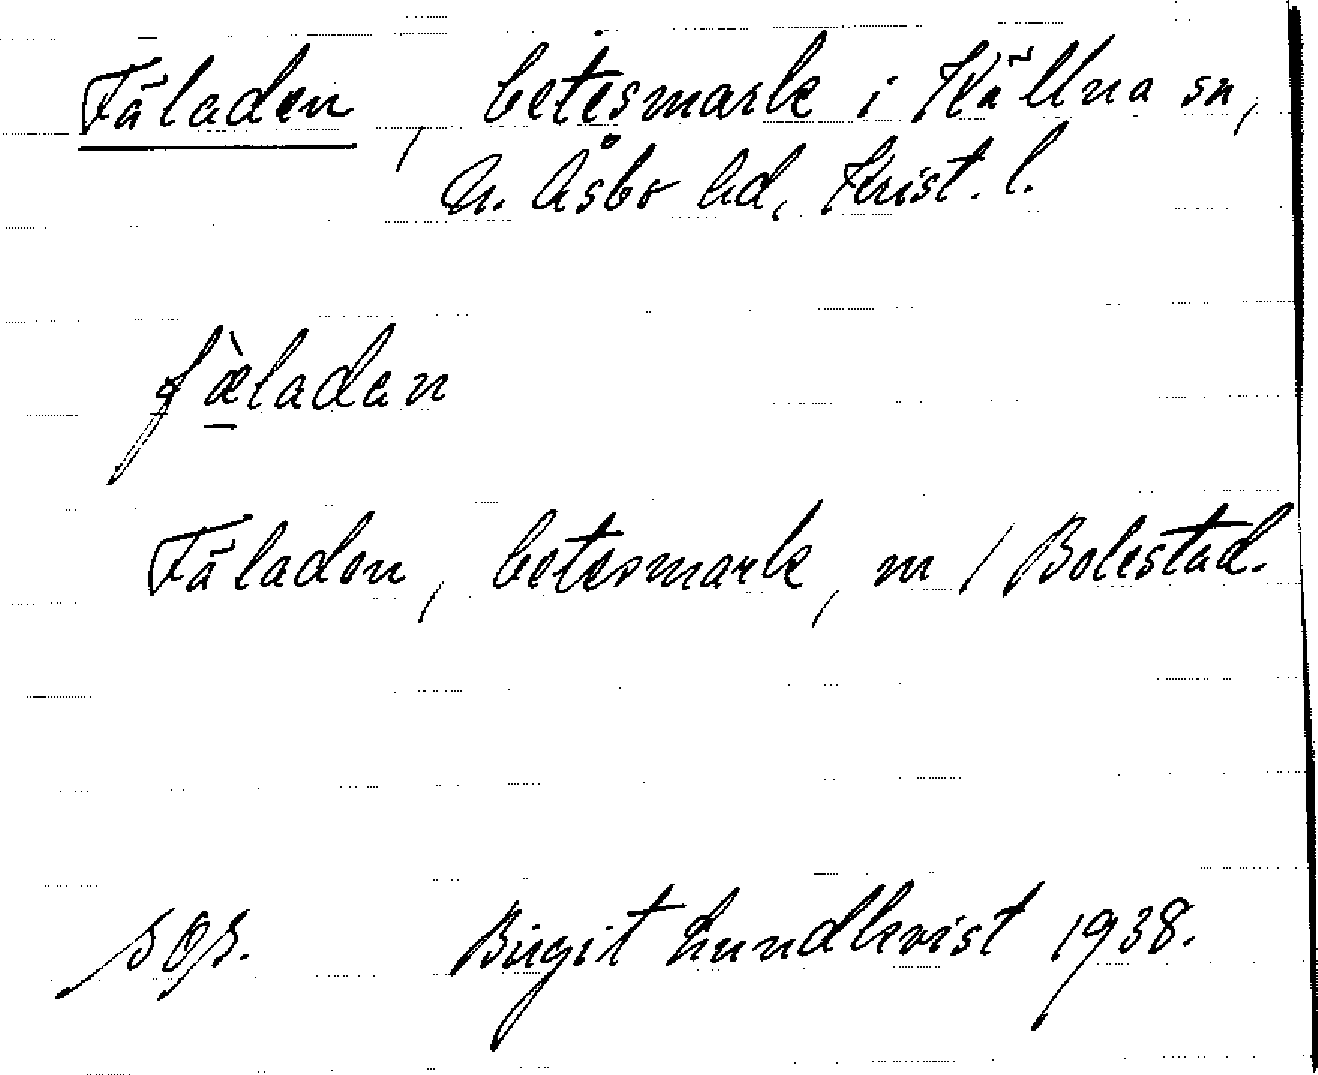 Fäladen, betesmark i Källna sn,
N. Åsbo hd, Krist. l.
fæ̀ladan
Fäladen, betesmark, m / Bolestad.
sgs. Birgit Lundkvist 1938.